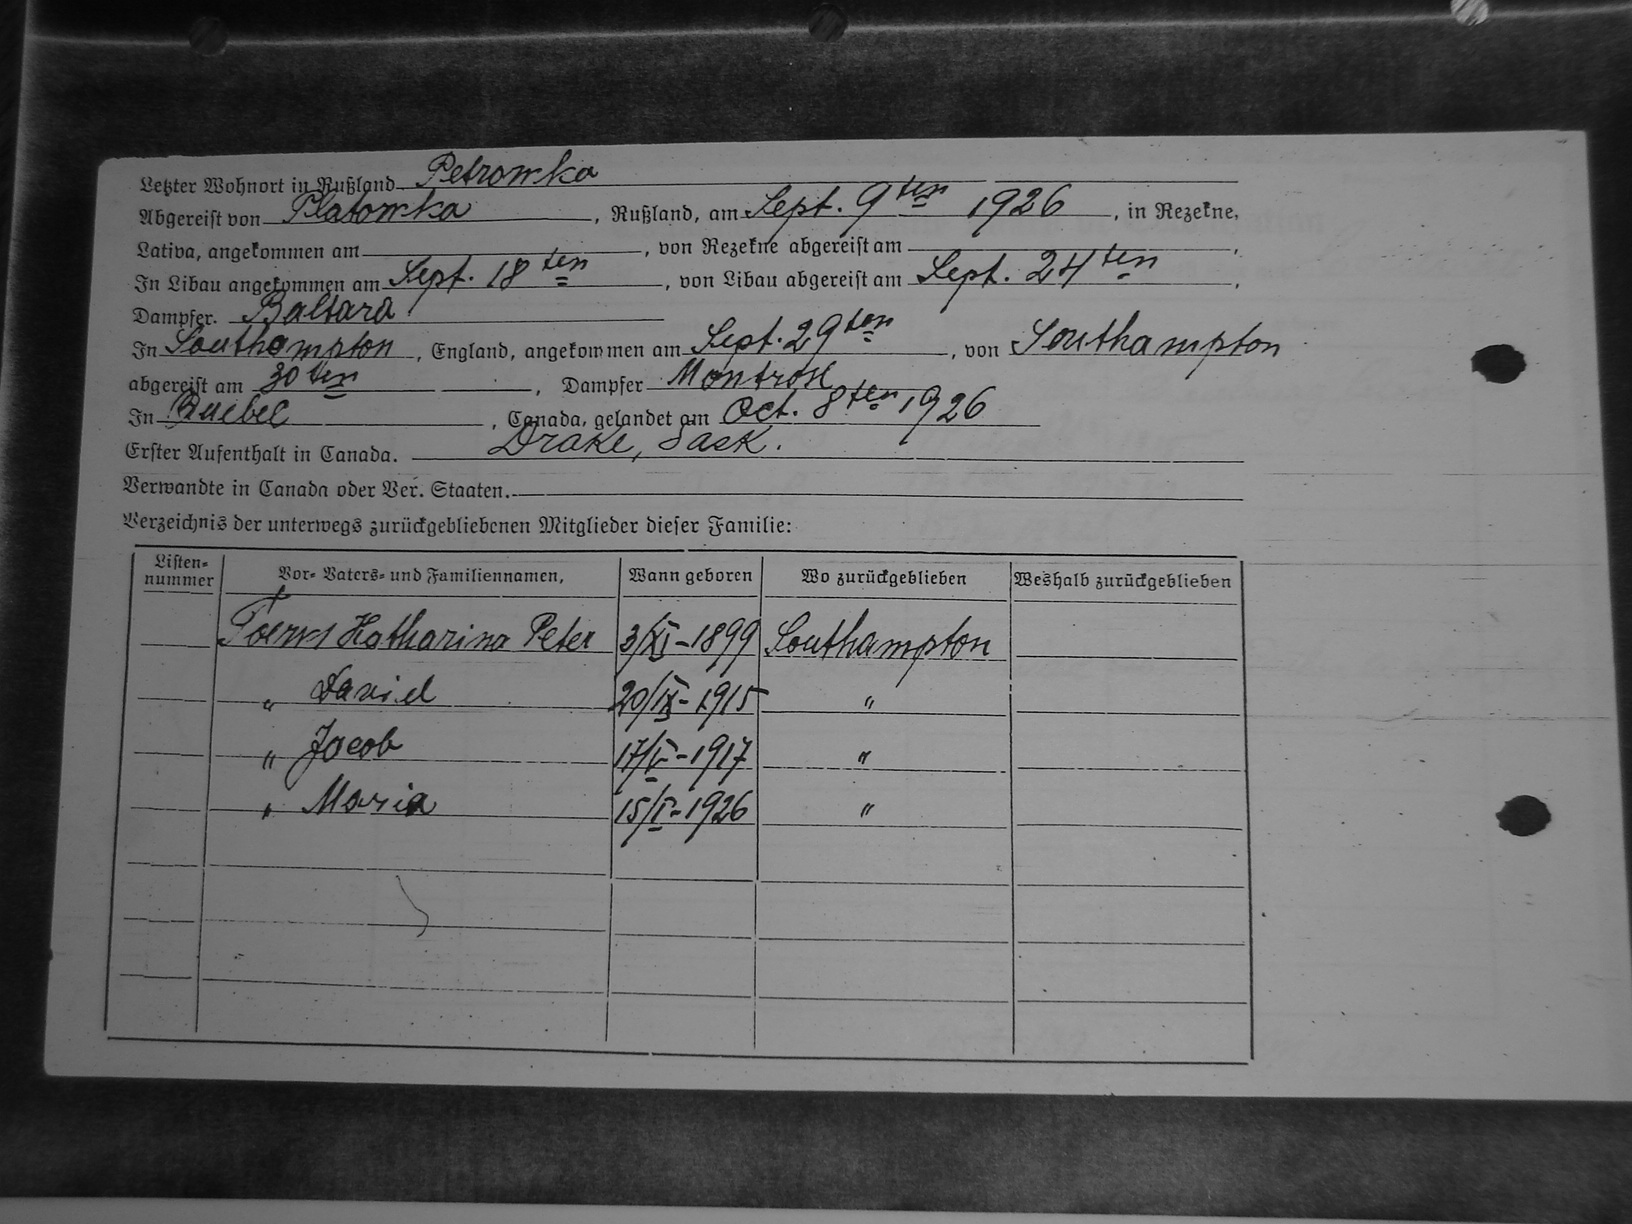 Letzter Wohnort in Rußland Petrowka
Abgereist von Platowka, Rußland, am Sept. 9ten 1926, in Rezekne,
Lativa, angekommen am , von Rezekne abgereist am ,
In Libau angekommen am Sept. 18ten, von Libau abgereist am Sept. 24ten,
Dampfer. Baltara
In Southampton, England, angekommen am Sept. 29ten, von Southampton
abgereist am 30ten, Dampfer Montrose
In Quebec, Canada, gelandet am Oct. 8ten 1926
Erster Aufenthalt in Canada. Drake, Sask.
Verwandte in Canada oder Ver. Staaten.
Verzeichnis der unterwegs zurückgebliebenen Mitglieder dieser Familie:
Listen-nummer Vor- Vaters- und Familiennamen, Wann geboren Wo zurückgeblieben Weshalb zurückgeblieben
Toews Katharina Peter 3/XI-1899 Southampton
" David 20/IX-1915 "
" Jacob 17/V-1917 "
" Maria 15/I-1926 "